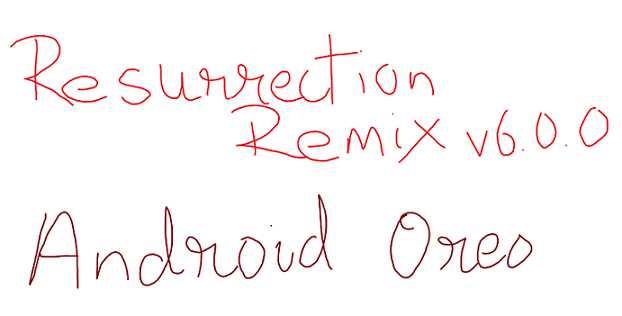 Resurrection
Remix v6.0.0
Android Oreo